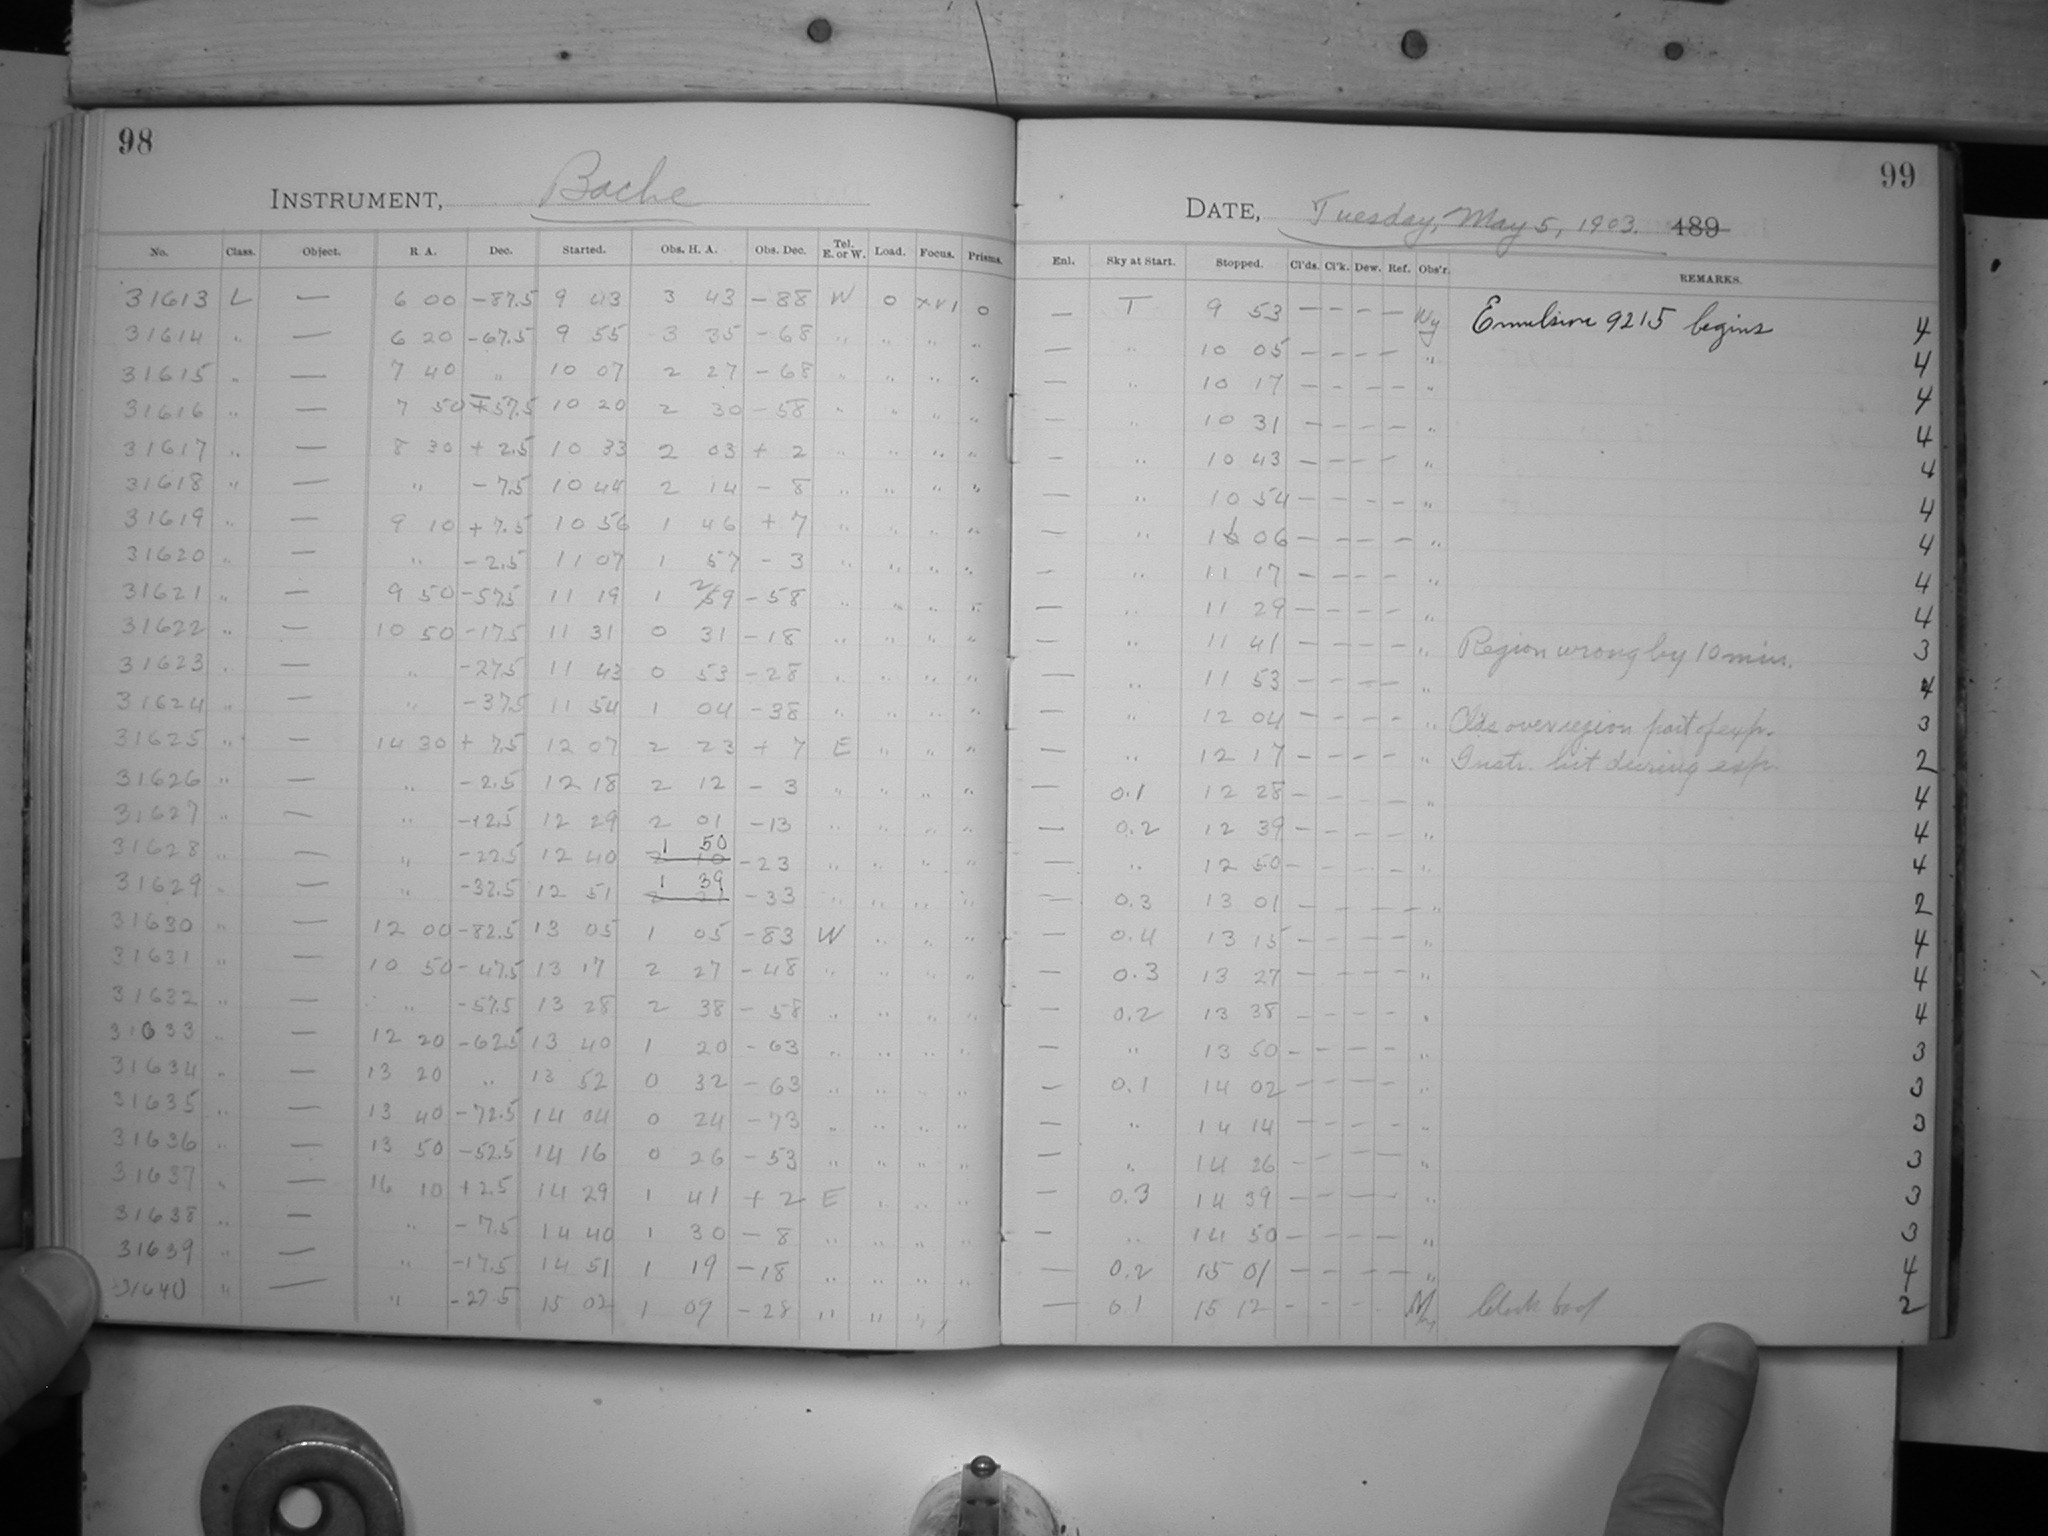 98
INSTRUMENT, Bache
No. Class. Object. R. A. Dec. Started. Obs. H. A. Obs. Dec. Tel. E. or W. Load. Focus. Prisms.
31613 L — 6 00 -87.5 9 43 3 43 -88 W 0 xvi 0
31614 " — 6 20 -67.5 9 55 3 35 -68 " " " "
31615 " — 7 40 " 10 07 2 27 -68 " " " "
31616 " — 7 50 -57.5 10 20 2 30 -58 " " " "
31617 " — 8 30 + 2.5 10 33 2 03 + 2 " " " "
31618 " — " - 7.5 10 44 2 14 - 8 " " " "
31619 " — 9 10 + 7.5 10 56 1 46 + 7 " " " "
31620 " — " - 2.5 11 07 1 57 - 3 " " " "
31621 " — 9 50 -57.5 11 19 1 29 -58 " " " "
31622 " — 10 50 -17.5 11 31 0 31 -18 " " " "
31623 " — " -27.5 11 43 0 53 -28 " " " "
31624 " — " -37.5 11 54 1 04 -38 " " " "
31625 " — 14 30 + 7.5 12 07 2 23 + 7 E " " "
31626 " — " -2.5 12 18 2 12 - 3 " " " "
31627 " — " -12.5 12 29 2 01 -13 " " " "
31628 " — " -22.5 12 40 1 50 -23 " " " "
31629 " — " -32.5 12 51 1 39 -33 " " " "
31630 " — 12 00 -82.5 13 05 1 05 -83 W " " "
31631 " — 10 50 -47.5 13 17 2 27 -48 " " " "
31632 " — " -57.5 13 28 2 38 - 58 " " " "
31633 " — 12 20 -62.5 13 40 1 20 -63 " " " "
31634 " — 13 20 " 13 52 0 32 -63 " " " "
31635 " — 13 40 -72.5 14 04 0 24 -73 " " " "
31636 " — 13 50 -52.5 14 16 0 26 -53 " " " "
31637 " — 16 10 +2.5 14 29 1 41 + 2 E " " "
31638 " — " - 7.5 14 40 1 30 - 8 " " " "
31639 " — " -17.5 14 51 1 19 -18 " " " "
31640 " — " -27.5 15 02 1 09 -28 " " " "
99
DATE, Tuesday, May 5, 1903. 189
Enl. Sky at Start. Stopped. Cl'ds. Cl'k. Dew. Ref. Obs'r. REMARKS.
— T 9 53 — — — — Wy Emulsion 9215 begins 4
— " 10 05 — — — — " 4
— " 10 17 — — — — " 4
— " 10 31 — — — — " 4
— " 10 43 — — — — " 4
— " 10 54 — — — — " 4
— " 11 06 — — — — " 4
— " 11 17 — — — — " 4
— " 11 29 — — — — " 4
— " 11 41 — — — — " Region wrong by 10 min. 3
— " 11 53 — — — — " 4
— " 12 04 — — — — " Clds over region part of exp. 3
— " 12 17 — — — — " Instr. hit during exp. 2
— 0.1 12 28 — — — — " 4
— 0.2 12 39 — — — — " 4
— " 12 50 — — — — " 4
— 0.3 13 01 — — — — " 2
— 0.4 13 15 — — — — " 4
— 0.3 13 27 — — — — " 4
— 0.2 13 38 — — — — " 4
— " 13 50 — — — — " 3
— 0.1 14 02 — — — — " 3
— " 14 14 — — — — " 3
— " 14 26 — — — — " 3
— 0.3 14 39 — — — — " 3
— " 14 50 — — — — " 3
— 0.2 15 01 — — — — " 4
— 0.1 15 12 - - - - 2